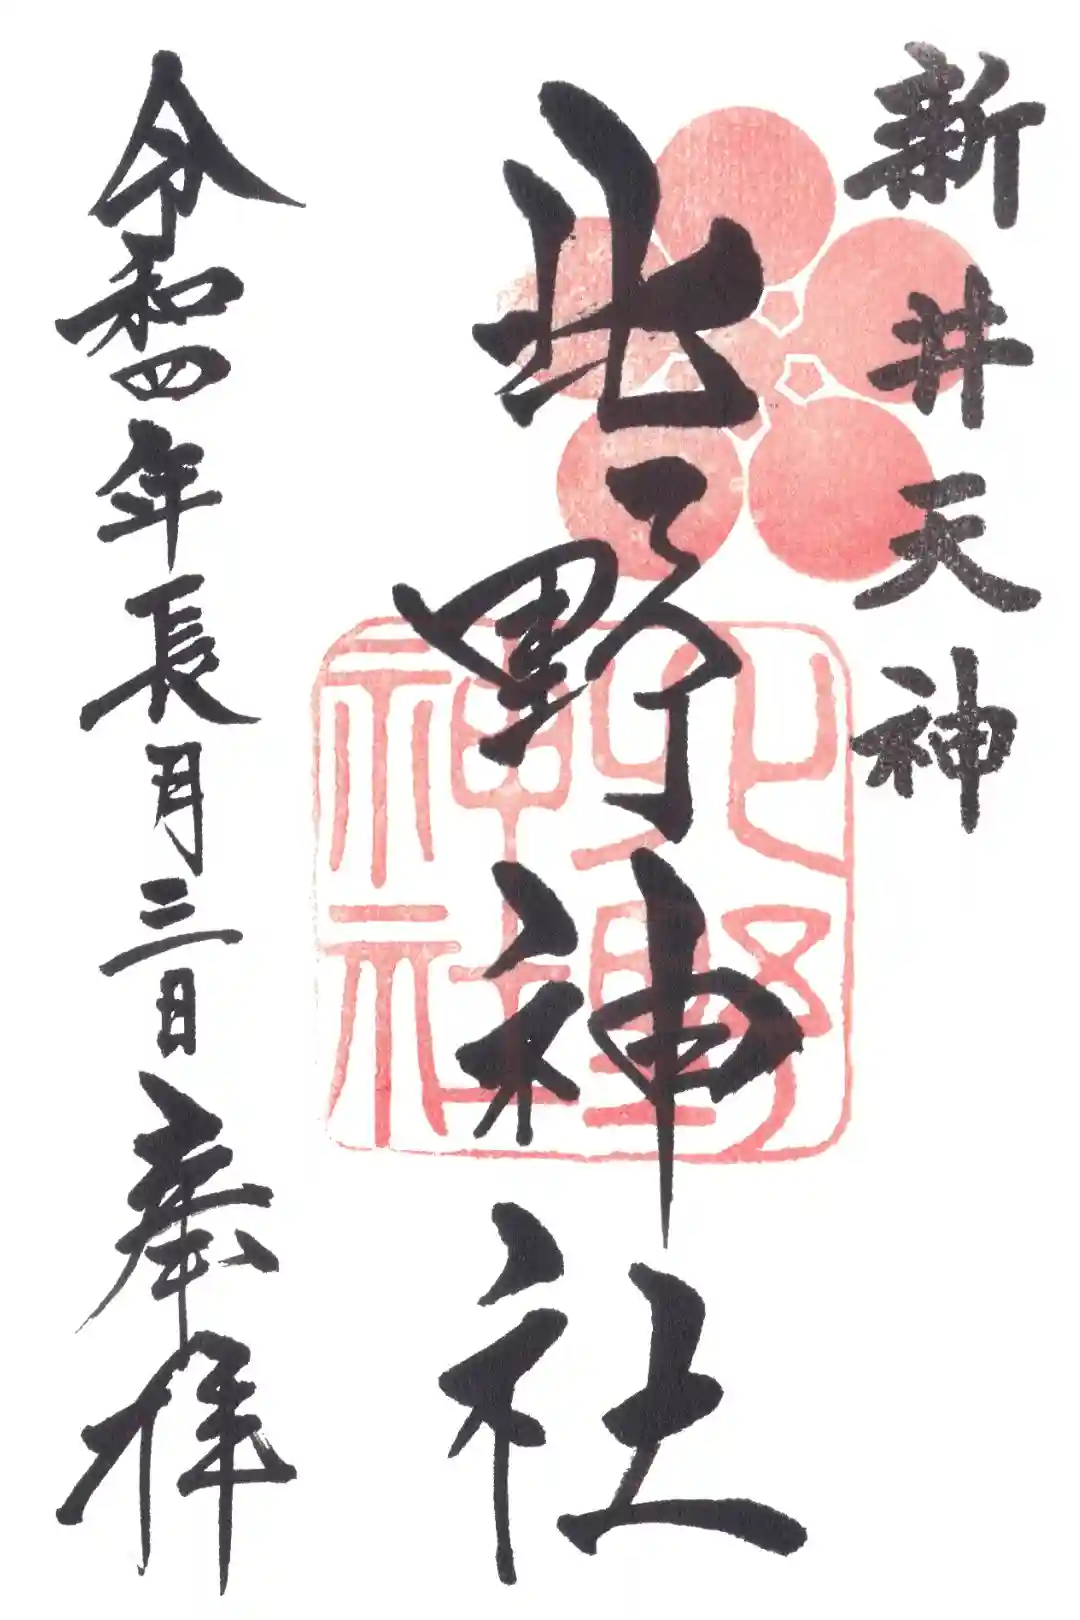 新井天神
北野神社
令和四年長月三日奉拝
北野
神社